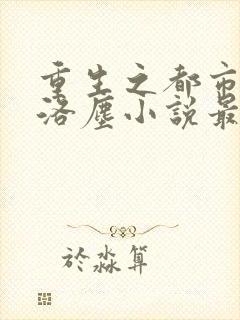 重生之都市
洛塵小說最
於淼算